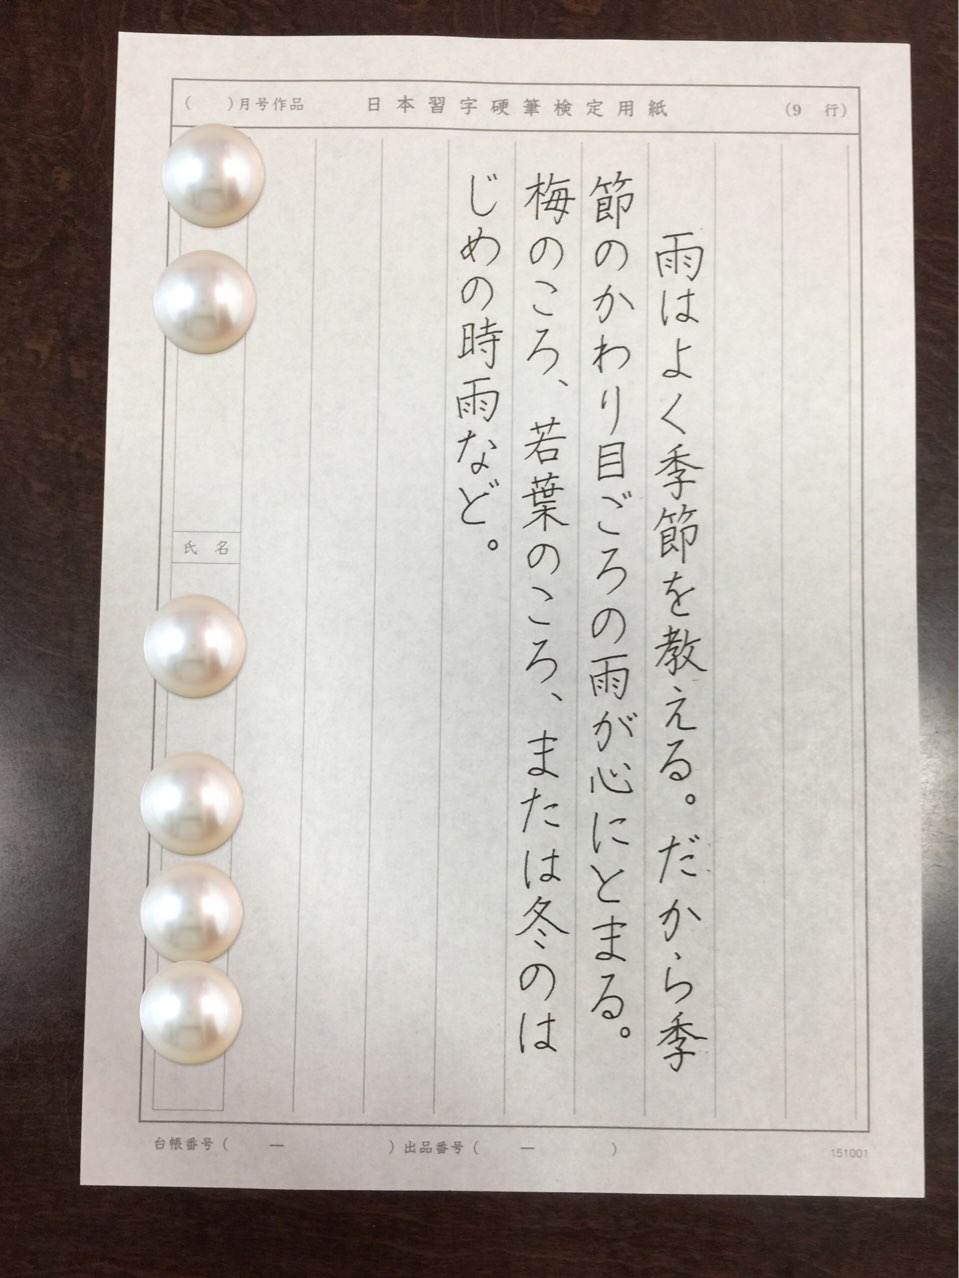 ( )月号作品 日本習字硬筆検定用紙 (9 行)
雨はよく季節を教える。だから季
節のかわり目ごろの雨が心にとまる。
梅のころ、若葉のころ、または冬のは
じめの時雨など。
氏名
台帳番号( ー ) 出品番号( ー )
151001